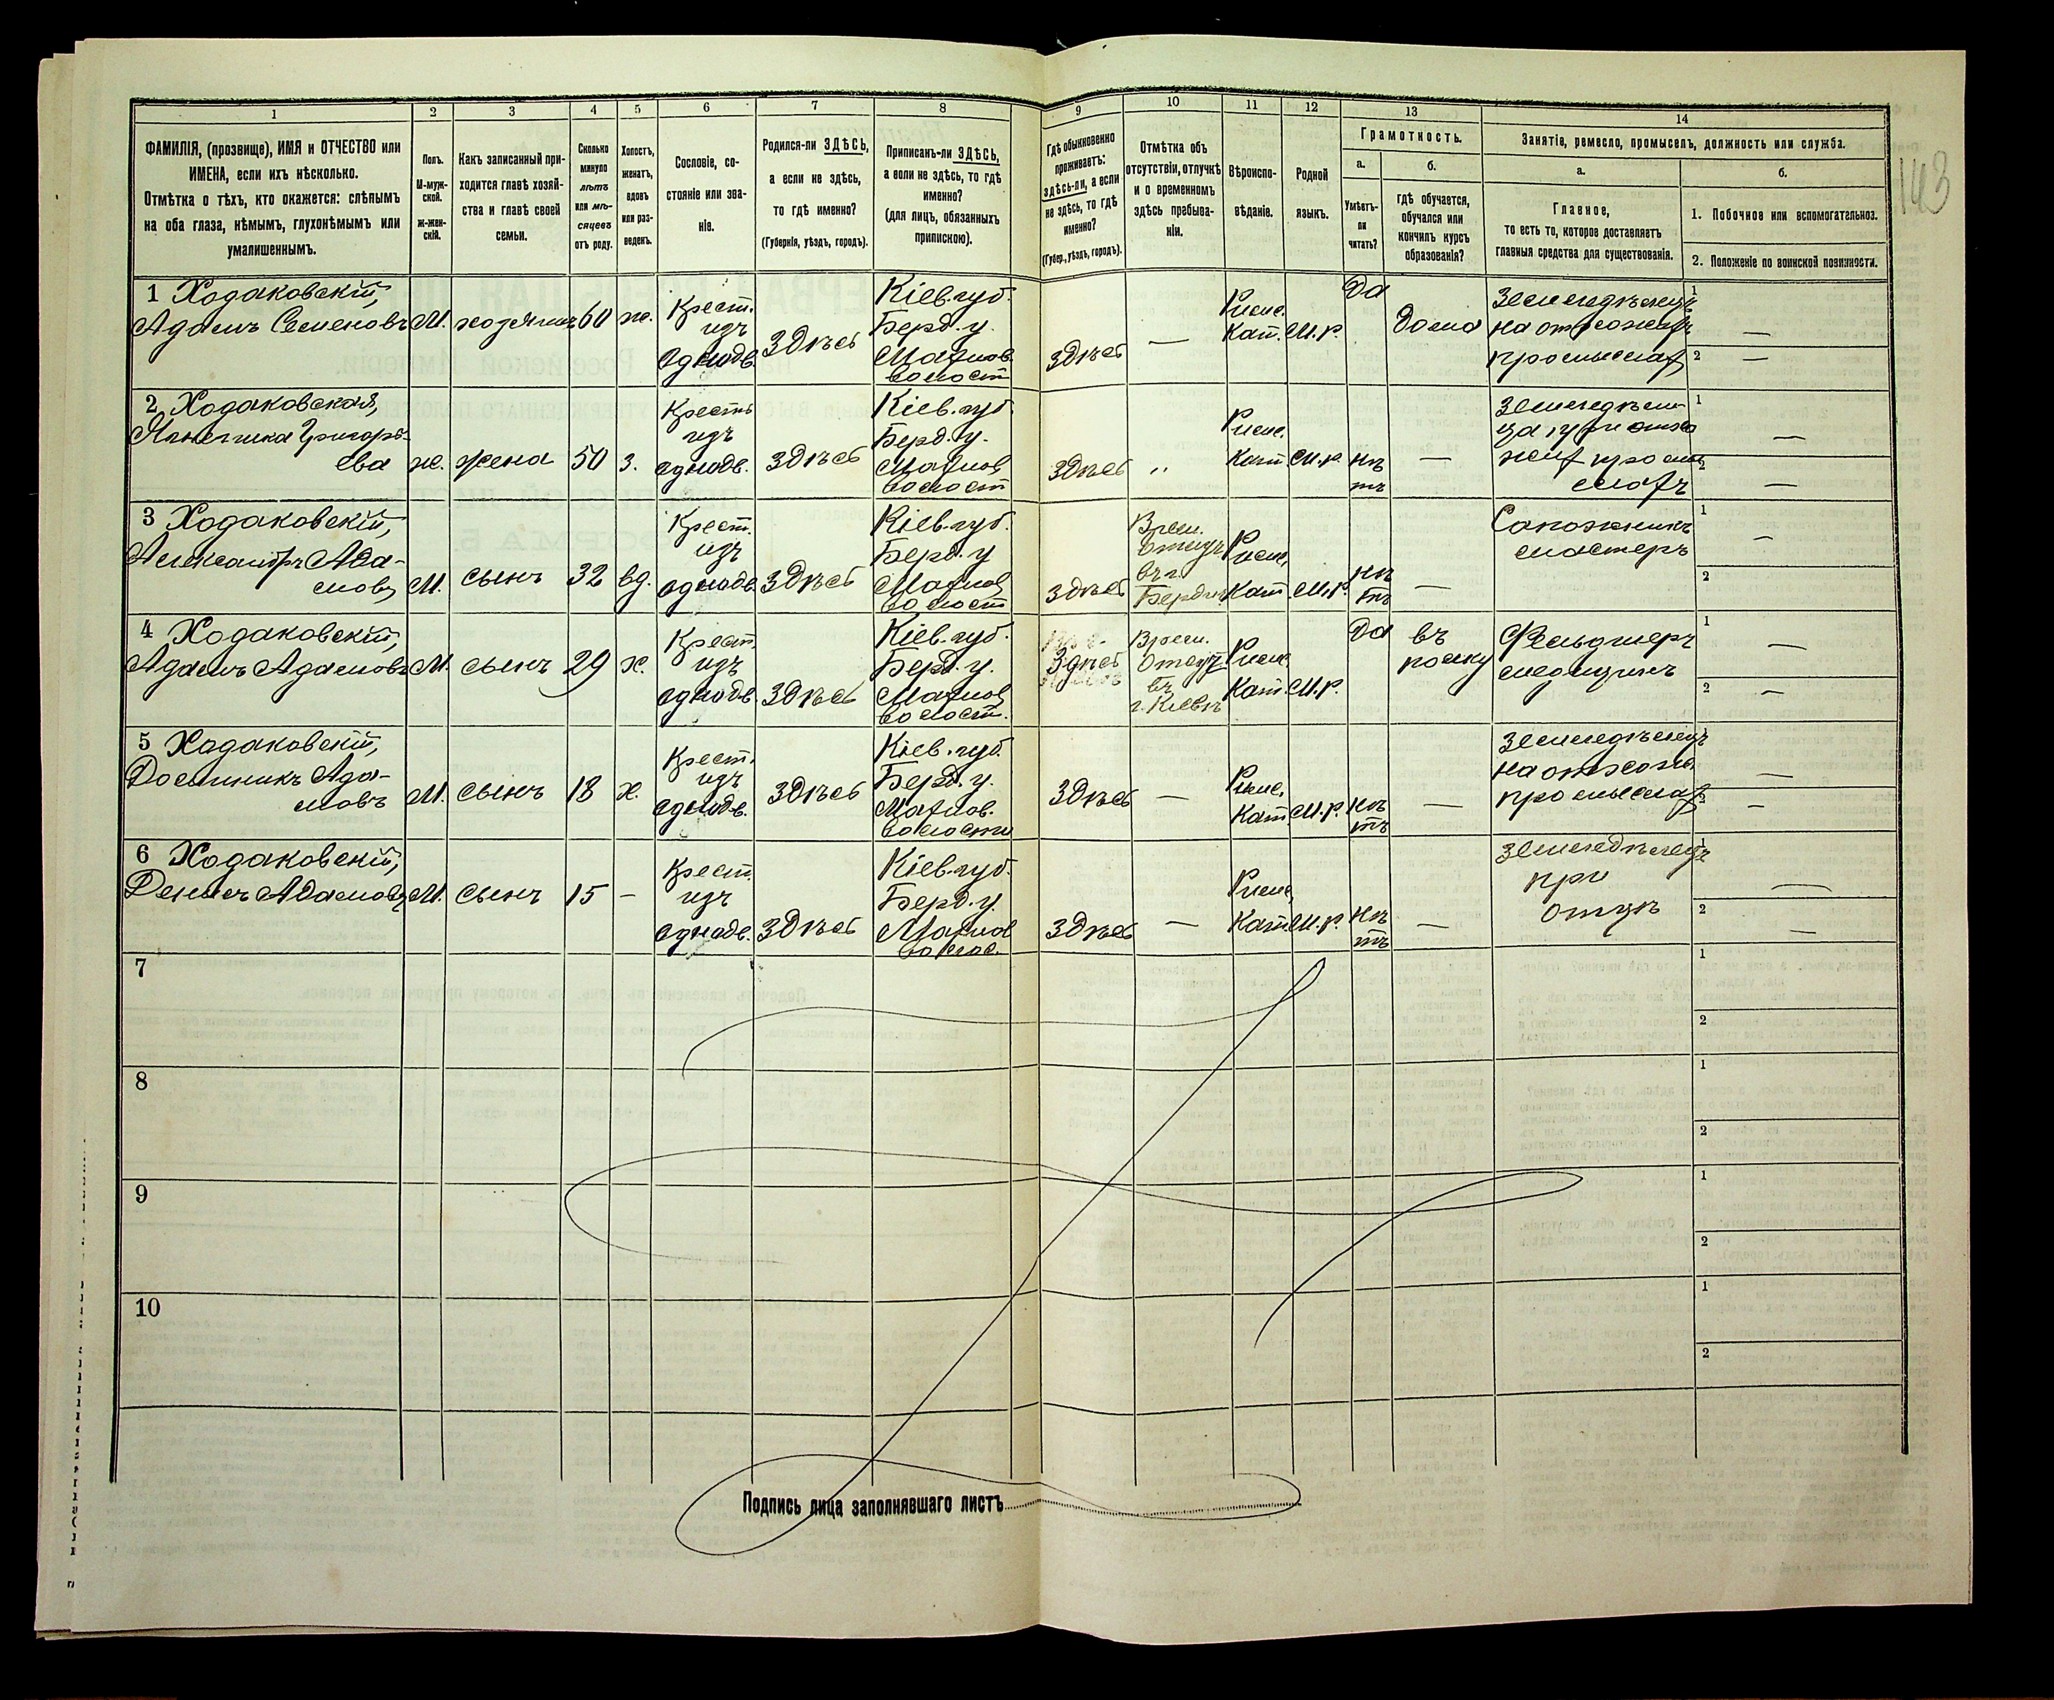 143
1 2 3 4 5 6 7 8 9 10 11 12 13 14
ФАМИЛІЯ, (прозвище), ИМЯ и ОТЧЕСТВО или
ИМЕНА, если ихъ нѣсколько.
Отмѣтка о тѣхъ, кто окажется: слѣпымъ
на оба глаза, нѣмымъ, глухонѣмымъ или
умалишеннымъ.
Полъ.
М-муж-
ской.
ж-жен-
скій.
Какъ записанный при-
ходится главѣ хозяй-
ства и главѣ своей
семьи.
Сколько
минуло
лѣтъ
или мѣ-
сяцевъ
отъ роду.
Холостъ,
женатъ,
вдовъ
или раз-
веденъ.
Сословіе, со-
стояніе или зва-
ніе.
Родился-ли ЗДѢСЬ,
а если не здѣсь,
то гдѣ именно?
(Губернія, уѣздъ, городъ).
Приписанъ-ли ЗДѢСЬ,
а если не здѣсь, то гдѣ
именно?
(для лицъ, обязанныхъ
припискою).
Гдѣ обыкновенно
проживаетъ:
здѣсь-ли, а если
не здѣсь, то гдѣ
именно?
(Губер., уѣздъ, городъ).
Отмѣтка объ
отсутствіи, отлучкѣ
и о временномъ
здѣсь пребыва-
ніи.
Вѣроиспо-
вѣданіе.
Родной
языкъ.
Грамотность.
а.
Умѣетъ-
ли
читать?
б.
гдѣ обучается,
обучался или
кончилъ курсъ
образованія?
Занятіе, ремесло, промыселъ, должность или служба.
а.
Главное,
то есть то, которое доставляетъ
главныя средства для существованія.
б.
1. Побочное или вспомогательное.
2. Положеніе по воинской повинности.
1 Ходаковскій,
Адамъ Семеновъ
М.
хозяинъ
60
ж.
Крест.
изъ
однодв.
Здѣсь
Кіев. губ.
Берд. у.
Махнов.
волост
Здѣсь
—
Римс.
Кат.
М.р.
Да
дома
Земледѣлецъ
на отхожихъ
промыслахъ
1 —
2 —
2 Ходаковская,
Григорь-
ева
ж.
жена
50
з.
Крестъ
изъ
однодв.
Здѣсь
Кіев. губ.
Берд. у.
Махнов
волост
Здѣсь
„
Римс.
Кат.
М.р.
нѣ
тъ
—
1 —
2 —
3 Ходаковскій,
Александръ Ада-
мовъ
М.
сынъ
32
вд.
Крест.
изъ
однодв.
Здѣсь
Кіев. губ.
Берд. у
Махнов
волост
Здѣсь
Врем.
отсут.
въ г.
Бердич.
Римс.
Кат.
М.р.
нѣ
тъ
—
Сапожникъ
мастеръ
1 —
2
4 Ходаковскій,
Адамъ Адамовъ
М.
сынъ
29
х.
Крест
изъ
однодв.
Здѣсь
Кіев. губ.
Берд. у.
Махнов
волост.
Здѣсь
Врем.
отсут
въ
г. Кіевѣ
Римс.
Кат.
М.р.
Да
въ
полку
Фельдшеръ
медицинъ
1 —
2 —
5 Ходаковскій,
Доминикъ Ада-
мовъ
М.
сынъ
18
х.
Крест.
изъ
однодв.
Здѣсь
Кіев. губ.
Берд. у.
Махнов.
волости
Здѣсь
—
Римс.
Кат.
М.р.
нѣ
тъ
—
Земледѣлецъ
на отхожи.
промыслах
1 —
2 —
6 Ходаковскій,
Денисъ Адамовъ
М.
сынъ
15
—
Крест.
изъ
однодв.
Здѣсь
Кіев. губ.
Берд. у.
Махнов
волос.
Здѣсь
—
Римс.
Кат.
М.р.
нѣ
тъ
—
Земледѣлецъ
при
отцѣ
1 —
2 —
7
1
2
8
1
2
9
1
2
10
1
2
Подпись лица заполнявшаго листъ